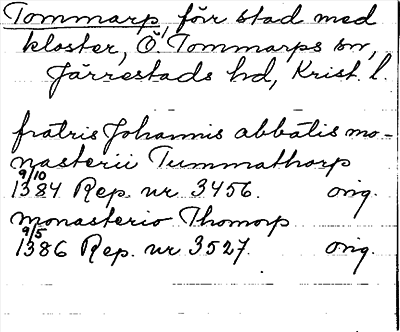 Tommarp, förr stad med
kloster, Ö. Tommarps sn,
Järrestads hd, Krist. l.
fratris Johannis abbatis mo-
nasterii Tummathorp
9/10
1384 Rep. nr 3456. orig.
monasterio Thomorp
9/5
1386 Rep. nr 3527. orig.